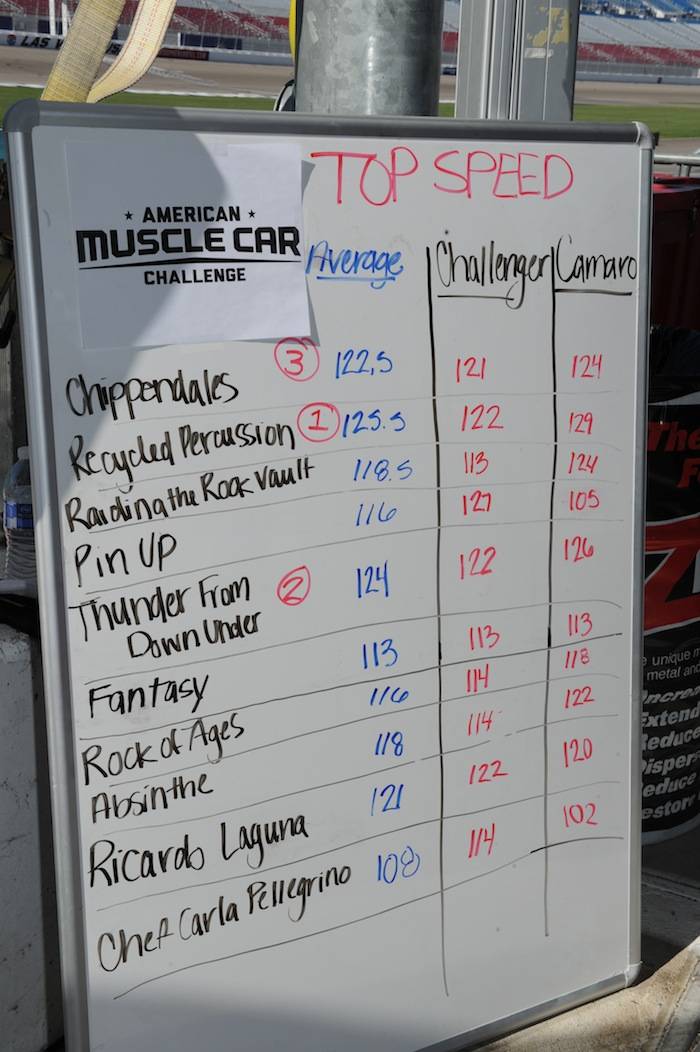 LAS
★ AMERICAN ★
MUSCLE CAR
CHALLENGE
TOP SPEED
Average Challenger Camaro
Chippendales 3 122.5 121 124
Recycled Percussion 1 125.5 122 129
Raiding the Rock Vault 118.5 113 124
Pin UP 116 127 105
Thunder From 2 124 122 126
Down Under
Fantasy 113 113 113
Rock of Ages 116 114 118
Absinthe 118 114 122
Ricardo Laguna 121 122 120
Chef Carla Pellegrino 108 114 102
The
Z
unique
metal and